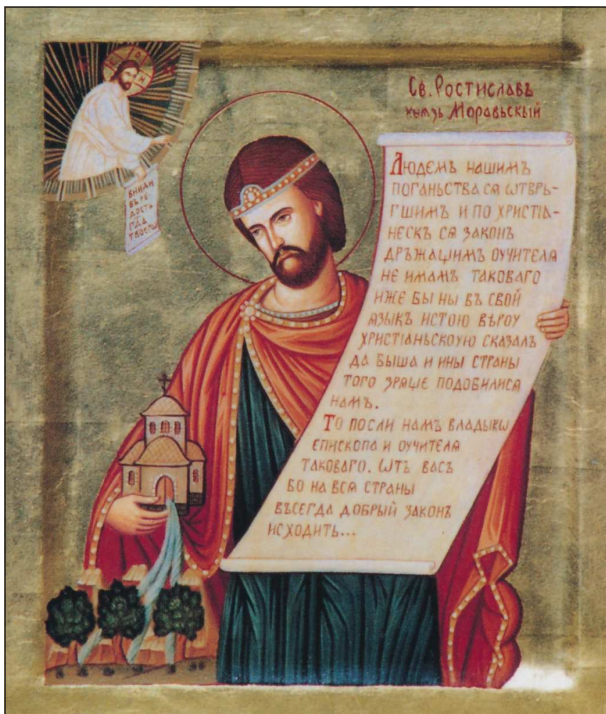 Св. Ростиславъ
князь Моравьскый
Людемъ нашимъ
поганьства ся ѡтврь-
гшимъ и по христіа-
нескъ ся законъ
дръжащимъ оучителя
не имамъ таковаго
иже бы ны въ свой
языкъ истою вѣроу
христіаньскоую сказалъ
да быша и ины страны
того зряще подобилися
намъ.
То посли намъ владыкѡ
епископа и оучителя
таковаго. Ѡтъ васъ
бо на вся страны
въсегда добрый законъ
исходить...
вниди
въ ра
дость